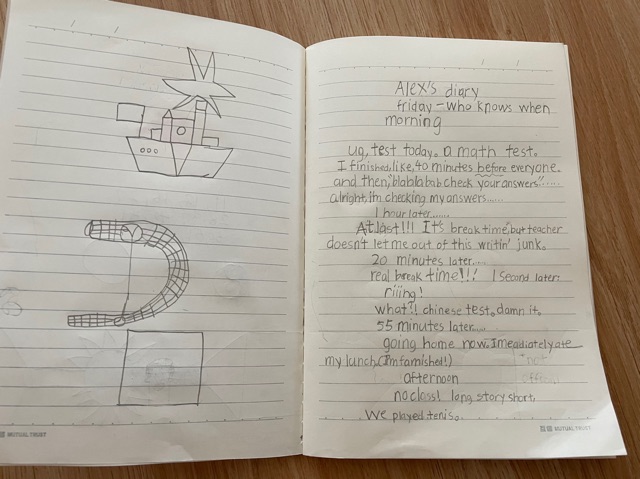 MUTUAL TRUST
Alex's diary
friday - who knows when
morning
ug, test today. a math test.
I finished, like, 40 minutes before everyone.
and then, "blablabab check your answers"......
alright, i'm checking my answers......
1 hour later.......
At last!!! It's break time, but teacher
doesn't let me out of this writin' junk.
20 minutes later....
real break time!!! 1 second later:
riiing!
what!! chinese test. damn it.
55 minutes later.....
going home now. Imediately ate
my lunch. (I'm famished!)
afternoon
no class! long story short,
We played tenis.
MUTUAL TRUST